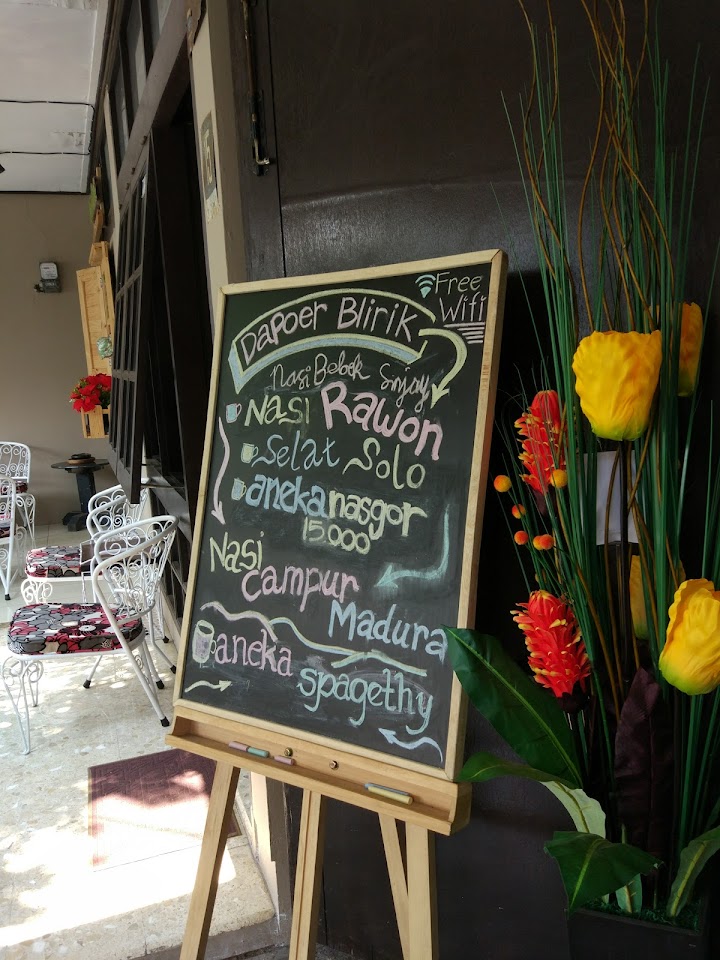 Free
Wifi
Dapoer Blirik
Nasi Bebek Sinjay
Nasi Rawon
Selat Solo
aneka nasgor
15.000
Nasi
Campur
Madura
aneka
spagethy